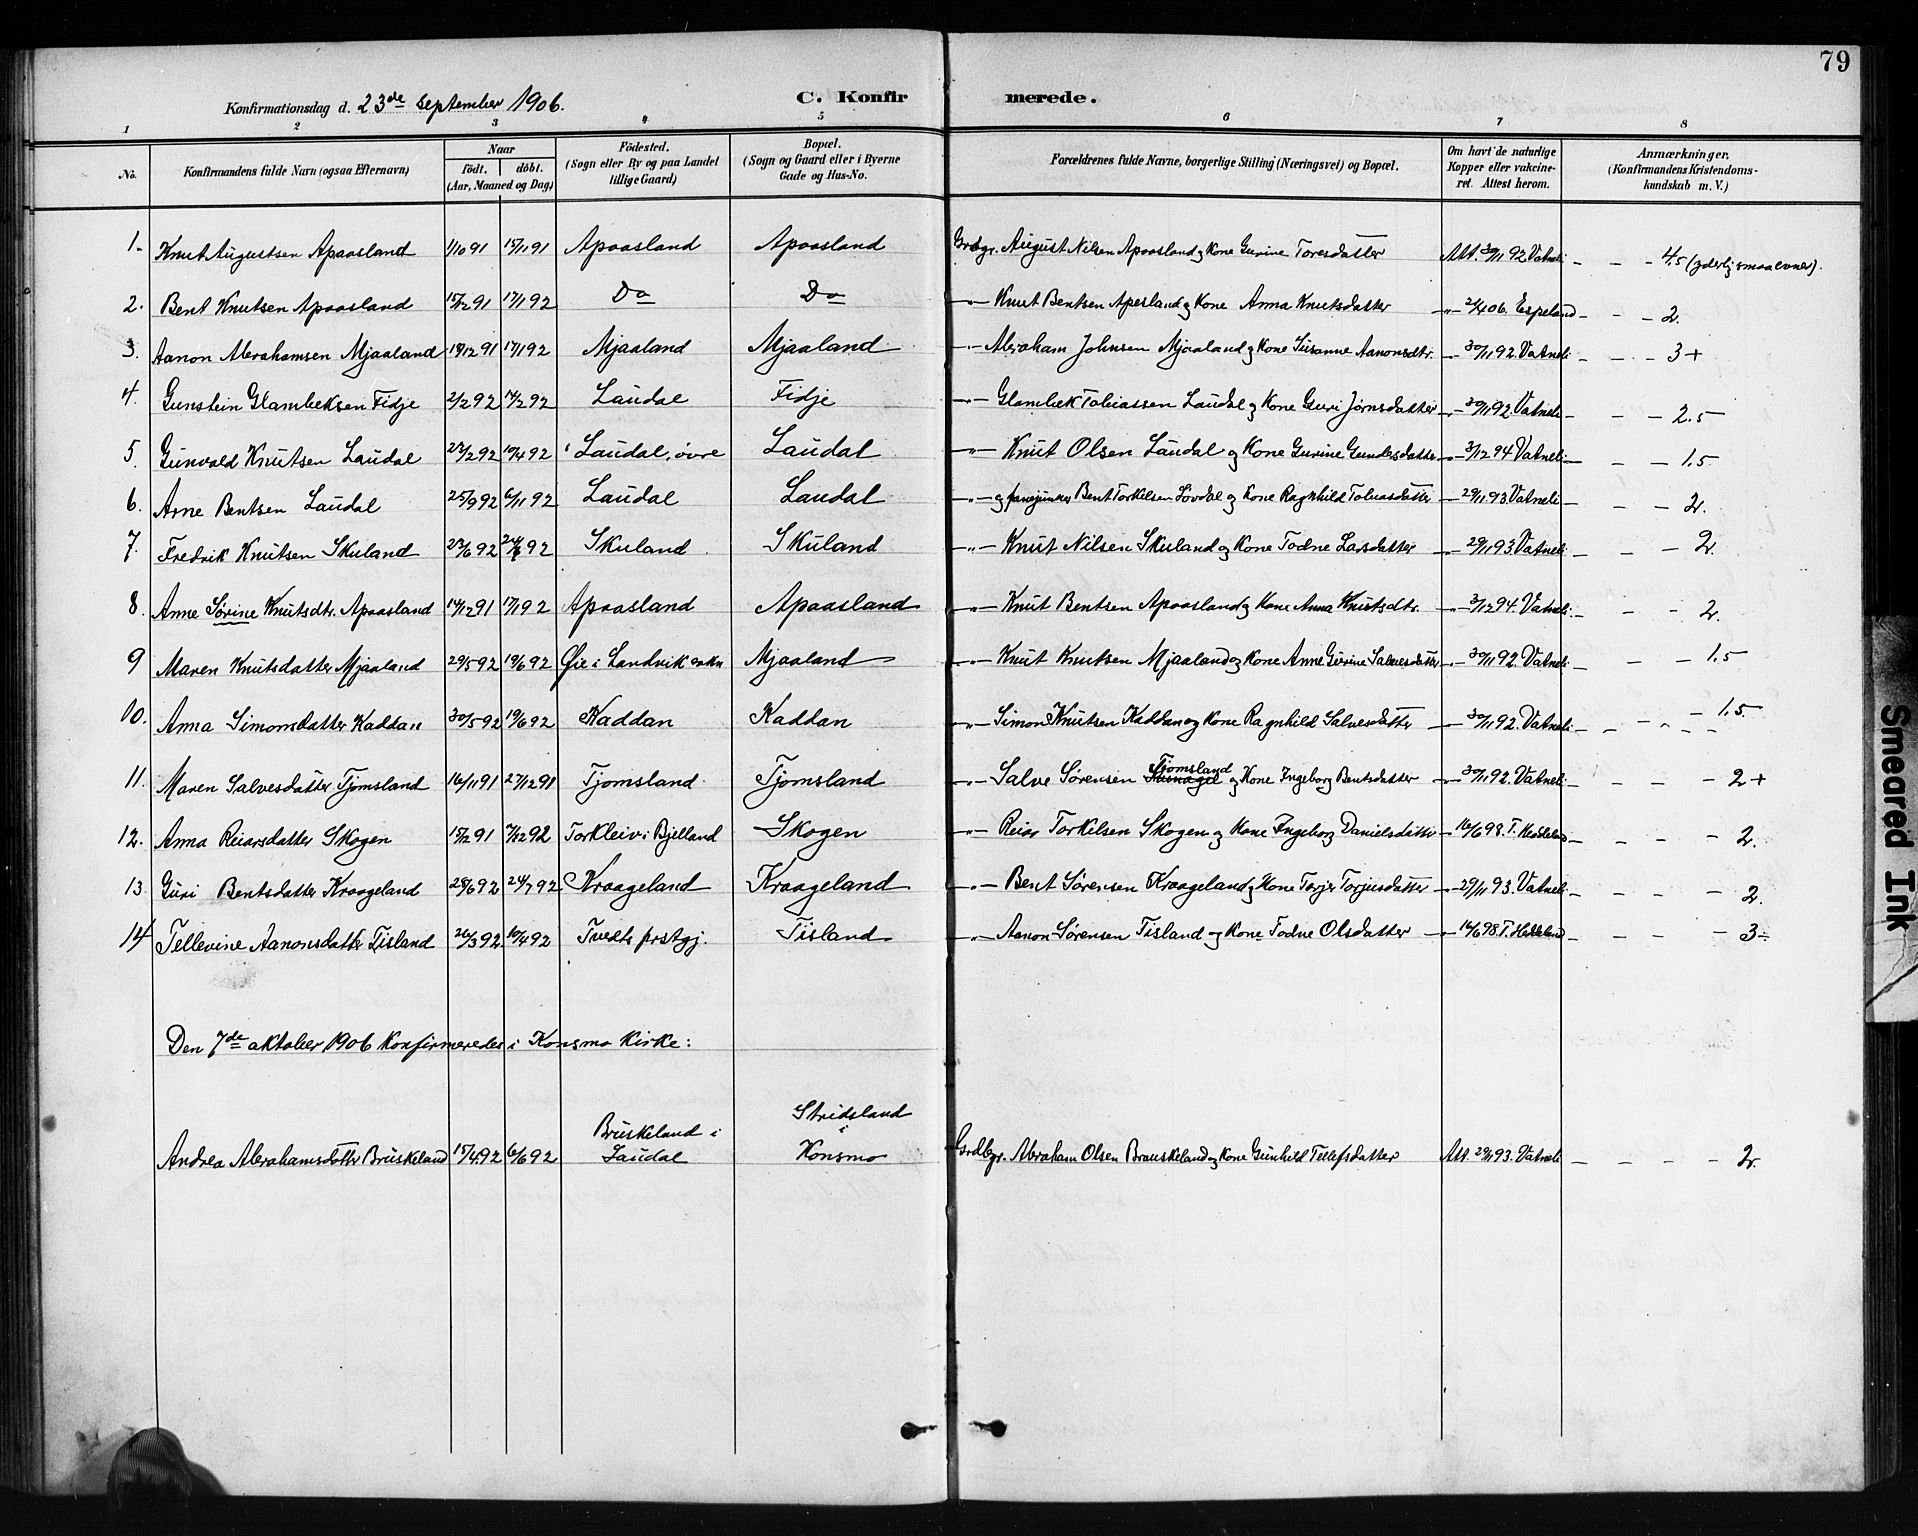 79
Konfirmationsdag d. 23de September 1906.
C. Konfirmerede.
1 2 3 4 5 6 7 8
No. Konfirmandens fulde Navn (ogsaa Efternavn) Naar födt. döbt. (Aar, Maaned og Dag) Födested. (Sogn eller By og paa Landet tillige Gaard) Bopæl. (Sogn og Gaard eller i Byerne Gade og Hus-No. Forældrenes fulde Navne, borgerlige Stilling (Næringsvei) og Bopæl. Om havt de naturlige Kopper eller vakcineret. Attest herom. Anmærkninger. (Konfirmandens Kristendomskundskab m. V.)
1. Knut Augustsen Apaasland 1/10 91 15/11 91 Apaasland Apaasland Grdbgr. August Nilsen Apaasland og Kone Gurine Toresdatter Att. 30/11 92 Vatneli - - - 4.5 (yderlig smaa evner).
2. Bent Knutsen Apaasland 15/12 91 17/1 92 Do Do -"- Knut Bentsen Apesland og Kone Anna Knutsdatter -"- 2/4 06. Espeland - - - 2.
3. Aanon Abrahamsen Mjaaland 19/12 91 17/1 92 Mjaaland Mjaaland -"- Abraham Johnsen Mjaaland og Kone Susanne Aanonsdtr. -"- 30/11 92. Vatneli - - - 3+
4. Gunstein Glambeksen Fidje 2/2 92 14/2 92 Laudal Fidje -"- Glambek Tobiassen Laudal og Kone Guri Jørnsdatter -"- 30/11 92. Vatneli - - - 2.5
5. Gunvald Knutsen Laudal 27/2 92 17/4 92 Laudal, øvre Laudal -"- Knut Olsen Laudal og Kone Gurine Gundersdatter -"- 3/12 94 Vatneli - - - 1.5
6. Arne Bentsen Laudal 25/9 92 6/11 92 Laudal Laudal -"- og fanejunker Bent Torkelsen Lövdal og Kone Ragnhild Tobiasdatter -"- 29/11 93. Vatneli - - - 2.
7. Fredrik Knutsen Skuland 23/6 92 92 Skuland Skuland -"- Knut Nilsen Skuland og Kone Todne Larsdatter -"- 29/11 93 Vatneli - - - 2.
8. Anne Sørine Knutsdtr. Apaasland 14/12 91 17/1 92 Apaasland Apaasland -"- Knut Bentsen Apaasland og Kone Anna Knutsdtr. -"- 3/12 94. Vatneli - - - 2.
9 Maren Knutsdatter Mjaaland 29/5 92 19/6 92 Øie i Landvik sokn Mjaaland -"- Knut Knutsen Mjaaland og Kone Anne Gurine Salvesdatter -"- 30/11 92. Vatneli - - - 1.5
10. Anna Simonsdatter Kaddan 30/5 92 19/6 92 Kaddan Kaddan -"- Simon Knutsen Kaddan og Kone Ragnhild Salvesdatter -"- 30/11 92. Vatneli - - - 1.5
11. Maren Salvesdatter Tjomsland 16/11 91 27/12 91 Tjomsland Tjomsland -"- Salve Sørensen Tjomsland og Kone Ingeborg Bentsdatter -"- 30/11 92. Vatneli - - - 2+
12. Anna Reiarsdatter Skogen 15/12 91 92 Torkleiv i Bjelland Skogen -"- Reiar Torkelsen Skogen og Kone Ingeborg Danielsdatter -"- 16/6 98. T. Heddeland - - - 2.
13. Guri Bentsdatter Kraageland 28/6 92 24/7 92 Kraageland Kraageland -"- Bent Sørensen Kraageland og Kone Torjer Torjusdatter -"- 29/11 93. Vatneli - - - 2.
14 Tellevine Aanonsdatter Tisland 26/3 92 10/4 92 Tvedts prstgj. Tisland -"- Aanon Sørensen Tisland og Kone Todne Olsdatter -"- 16/6 98. T. Heddeland - - - 3-
Den 7de oktober 1906 konfirmeredes i Konsmo kirke:
Andrea Abrahamsdatter Bruskeland 15/4 92 6/6 92 Bruskeland i Laudal Stridsland i Konsmo Grdbgr. Abraham Olsen Brauskeland og Kone Gunhild Tellefsdatter Att. 29/11 93. Vatneli - - - - 2.
Smeared Ink